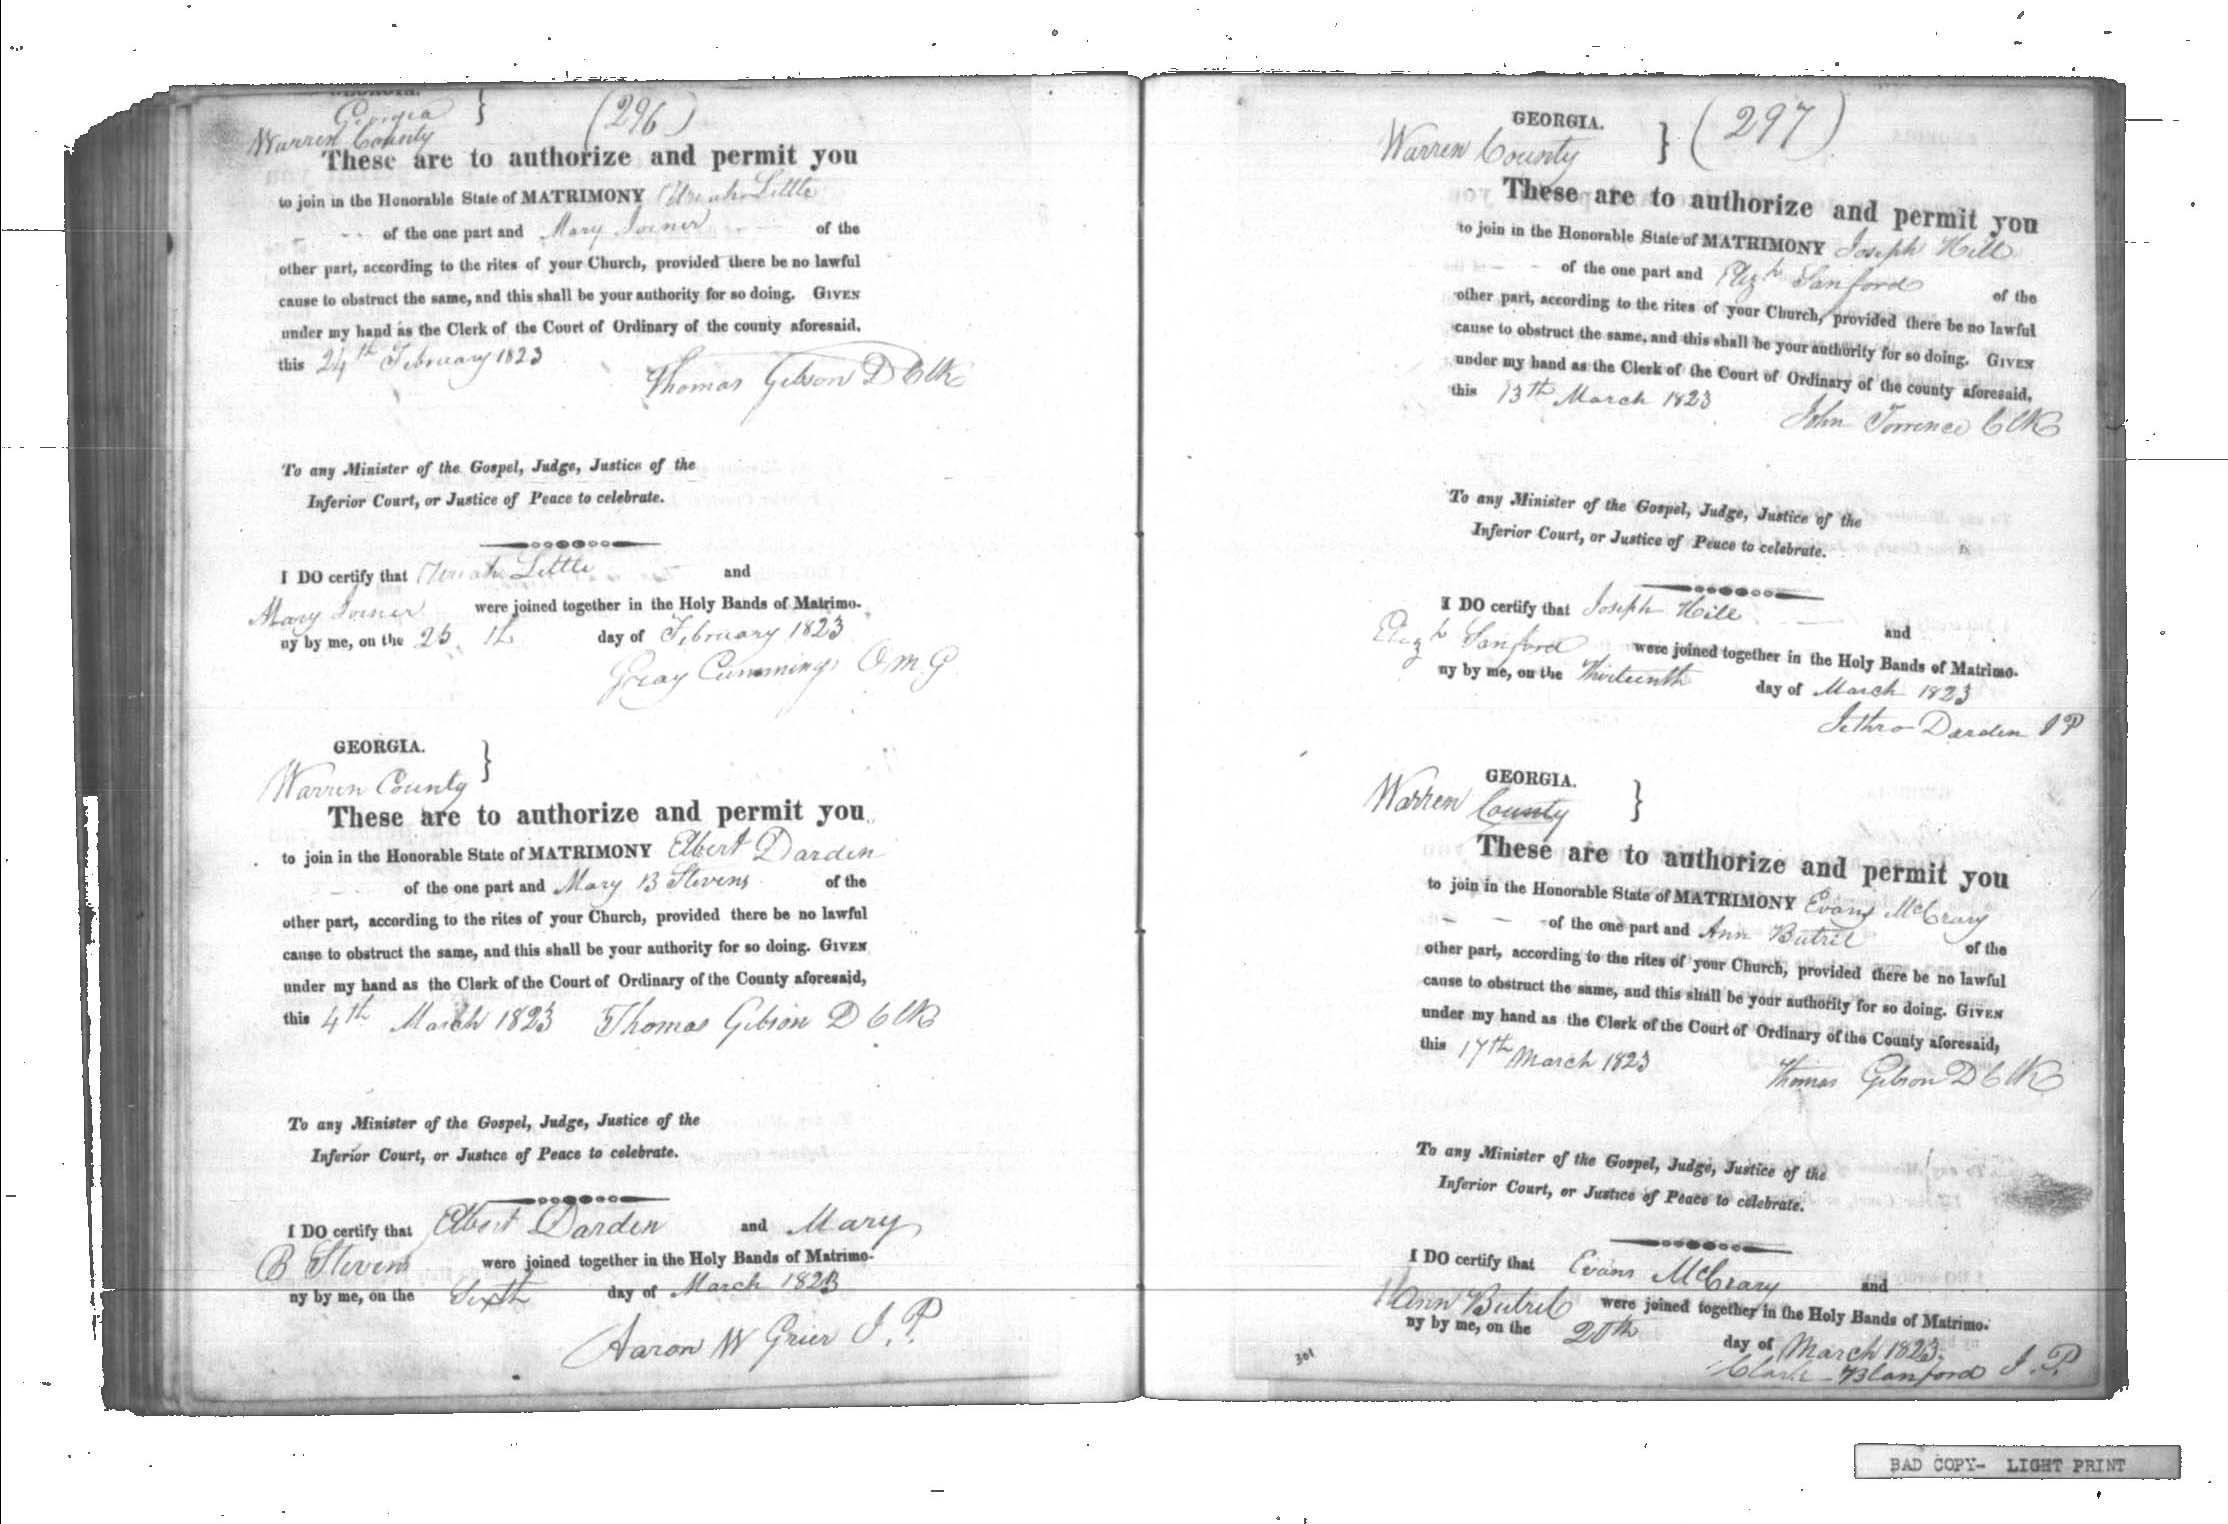 GEORGIA.
Georgia }
(296)
Warren County
These are to authorize and permit you
to join in the Honorable State of MATRIMONY Uriah Little
- - - of the one part and Mary Joiner - - of the
other part, according to the rites of your Church, provided there be no lawful
cause to obstruct the same, and this shall be your authority for so doing. GIVEN
under my hand as the Clerk of the Court of Ordinary of the county aforesaid,
this 24th February 1823
Thomas Gibson D Clk
To any Minister of the Gospel, Judge, Justice of the
Inferior Court, or Justice of Peace to celebrate.
I DO certify that Uriah Little and
Mary Joiner were joined together in the Holy Bands of Matrimo-
ny by me, on the 25 th day of February 1823
Gray Cummings O M G
GEORGIA. }
Warren County
These are to authorize and permit you
to join in the Honorable State of MATRIMONY Elbert Darden
- - of the one part and Mary B Stevens of the
other part, according to the rites of your Church, provided there be no lawful
cause to obstruct the same, and this shall be your authority for so doing. GIVEN
under my hand as the Clerk of the Court of Ordinary of the County aforesaid,
this 4th March 1823 Thomas Gibson D Clk
To any Minister of the Gospel, Judge, Justice of the
Inferior Court, or Justice of Peace to celebrate.
I DO certify that Elbert Darden and Mary
B Stevens were joined together in the Holy Bands of Matrimo-
ny by me, on the Sixth day of March 1823
Aaron W Grier J. P.
GEORGIA. } (297)
Warren County
These are to authorize and permit you
to join in the Honorable State of MATRIMONY Joseph Hill
- - of the one part and Elizh Sanford of the
other part, according to the rites of your Church, provided there be no lawful
cause to obstruct the same, and this shall be your authority for so doing. GIVEN
under my hand as the Clerk of the Court of Ordinary of the county aforesaid,
this 13th March 1823
John Torrence Clk
To any Minister of the Gospel, Judge, Justice of the
Inferior Court, or Justice of Peace to celebrate.
I DO certify that Joseph Hill - - - and
Elizh Sanford were joined together in the Holy Bands of Matrimo-
ny by me, on the Thirteenth day of March 1823
Jethro Darden J P
GEORGIA. }
Warren County
These are to authorize and permit you
to join in the Honorable State of MATRIMONY Evans McCrary
- - - of the one part and Ann Butril of the
other part, according to the rites of your Church, provided there be no lawful
cause to obstruct the same, and this shall be your authority for so doing. GIVEN
under my hand as the Clerk of the Court of Ordinary of the County aforesaid,
this 17th March 1823
Thomas Gibson D Clk
To any Minister of the Gospel, Judge, Justice of the
Inferior Court, or Justice of Peace to celebrate.
I DO certify that Evans McCrary and
Ann Butril were joined together in the Holy Bands of Matrimo-
ny by me, on the 20th day of March 1823.
Clark Blanford J. P.
301
BAD COPY- LIGHT PRINT